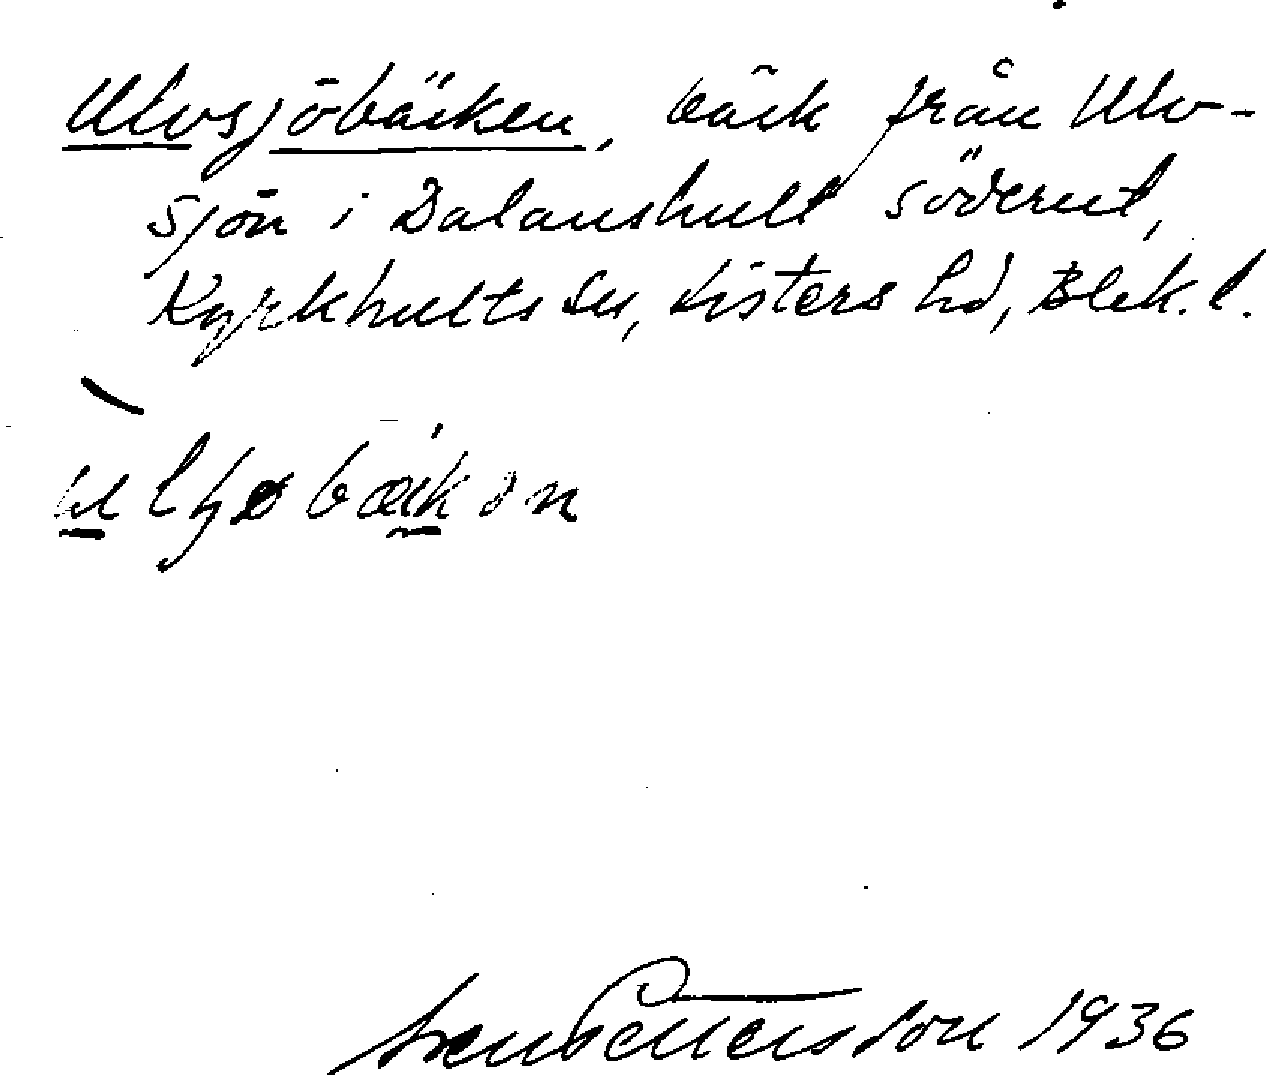 Ulvsjöbäcken, bäck från Ulv-
sjön i Dalanshult söderut,
Kyrkhults sn, Listers hd, Blek. l.
Sven Pettersson 1936